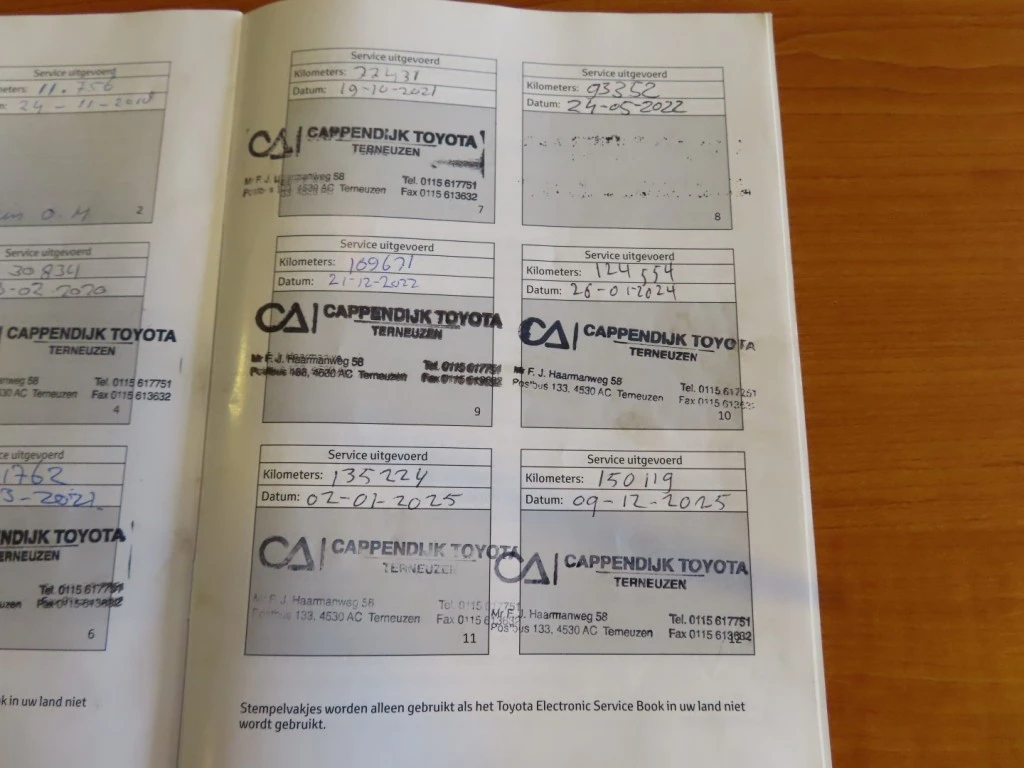 Service uitgevoerd
11.756
24-11-2018
2
Service uitgevoerd
30834
02-2020
CAPPENDIJK TOYOTA
TERNEUZEN
58
Tel. 0115 617751
4530 AC Terneuzen Fax 0115 613632
4
uitgevoerd
1762
3-2021
TOYOTA
Tel. 0115 617751
6
k in uw land niet
Service uitgevoerd
Kilometers: 77431
Datum: 19-10-2021
CA| CAPPENDIJK TOYOTA
TERNEUZEN
Mr F. J. Haarmanweg 58 Tel. 0115 617751
4530 AC Terneuzen Fax 0115 613632
7
Service uitgevoerd
Kilometers: 93352
Datum: 24-05-2022
8
Service uitgevoerd
Kilometers: 109671
Datum: 21-12-2022
CA| CAPPENDIJK TOYOTA
TERNEUZEN
Mr F. J. Haarmanweg 58 Tel. 0115 617751
4530 AC Terneuzen Fax 0115 613632
9
Service uitgevoerd
Kilometers: 124 554
Datum: 26-01-2024
CA| CAPPENDIJK TOYOTA
TERNEUZEN
Mr F. J. Haarmanweg 58 Tel. 0115
Postbus 133, 4530 AC Terneuzen Fax 0115
10
Service uitgevoerd
Kilometers: 135224
Datum: 02-01-2025
CA| CAPPENDIJK TOYOTA
TERNEUZEN
Mr F. J. Haarmanweg 58 Tel. 0115 617751
Postbus 133, 4530 AC Terneuzen Fax 0115
11
Service uitgevoerd
Kilometers: 150119
Datum: 09-12-2025
CA| CAPPENDIJK TOYOTA
TERNEUZEN
Mr F. J. Haarmanweg 58 Tel. 0115 617751
Postbus 133, 4530 AC Terneuzen Fax 0115 613632
12
Stempelvakjes worden alleen gebruikt als het Toyota Electronic Service Book in uw land niet
wordt gebruikt.